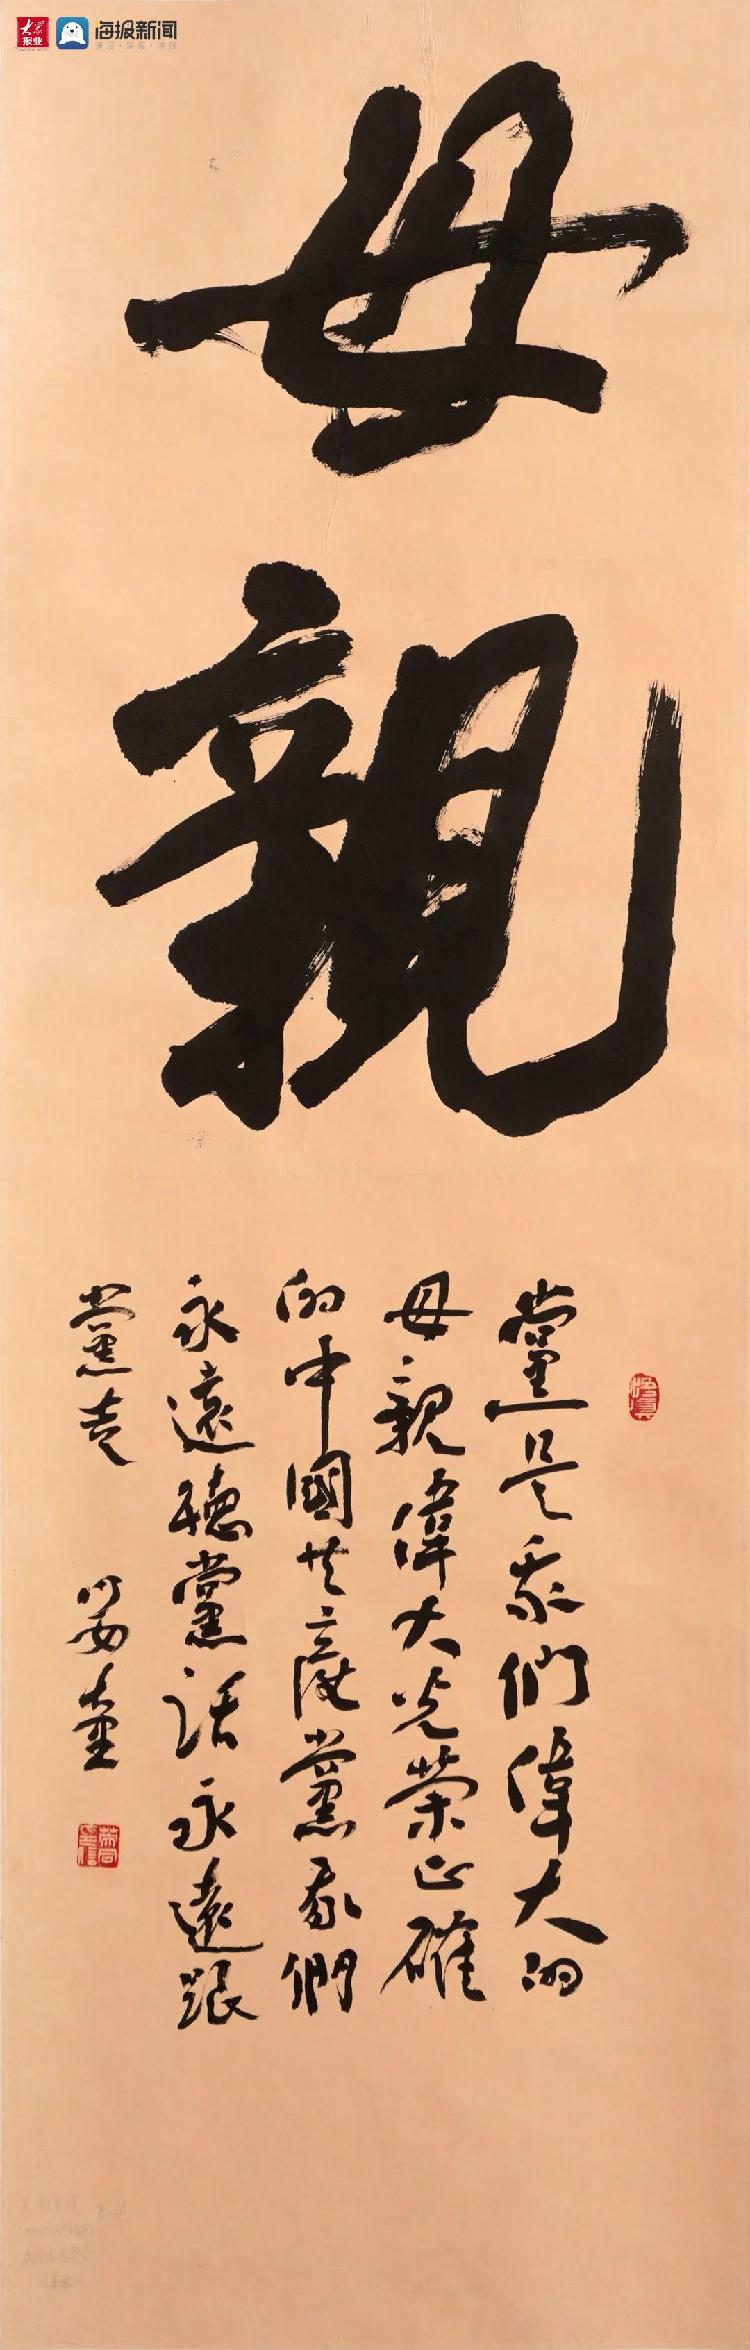 大众报业
海报新闻
母親
黨是我們偉大的
母親偉大光荣正確
的中國共产黨我們
永遠聽黨話永遠跟
黨走